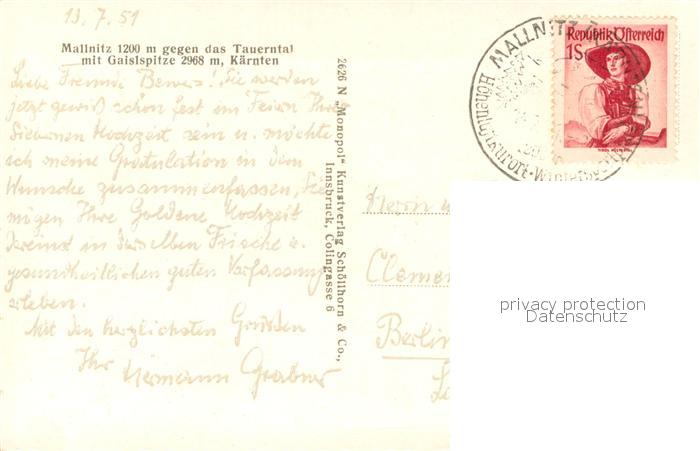 13.7.51
Mallnitz 1200 m gegen das Tauerntal
mit Gaislspitze 2968 m, Kärnten
Liebe Freunde! Sie werden
jetzt gewiß schon fest im Feiern Ihrer
Silbernen Hochzeit sein u. möchte
ich meine Gratulation in dem
Wunsche zusammenfassen, Sie
mögen Ihre Goldene Hochzeit
dereinst in derselben Frische u.
gesundheitlichen guten Verfassung
erleben.
Mit den herzlichsten Grüßen
Ihr
Hermann Grabner
2626 N „Monopol" Kunstverlag Schöllhorn & Co.,
Innsbruck, Colingasse 6
MALLNITZ
Höhenluftkurort-Wintersp
Republik Österreich
1S
Herrn u
Clemen
Berlin
privacy protection
Datenschutz